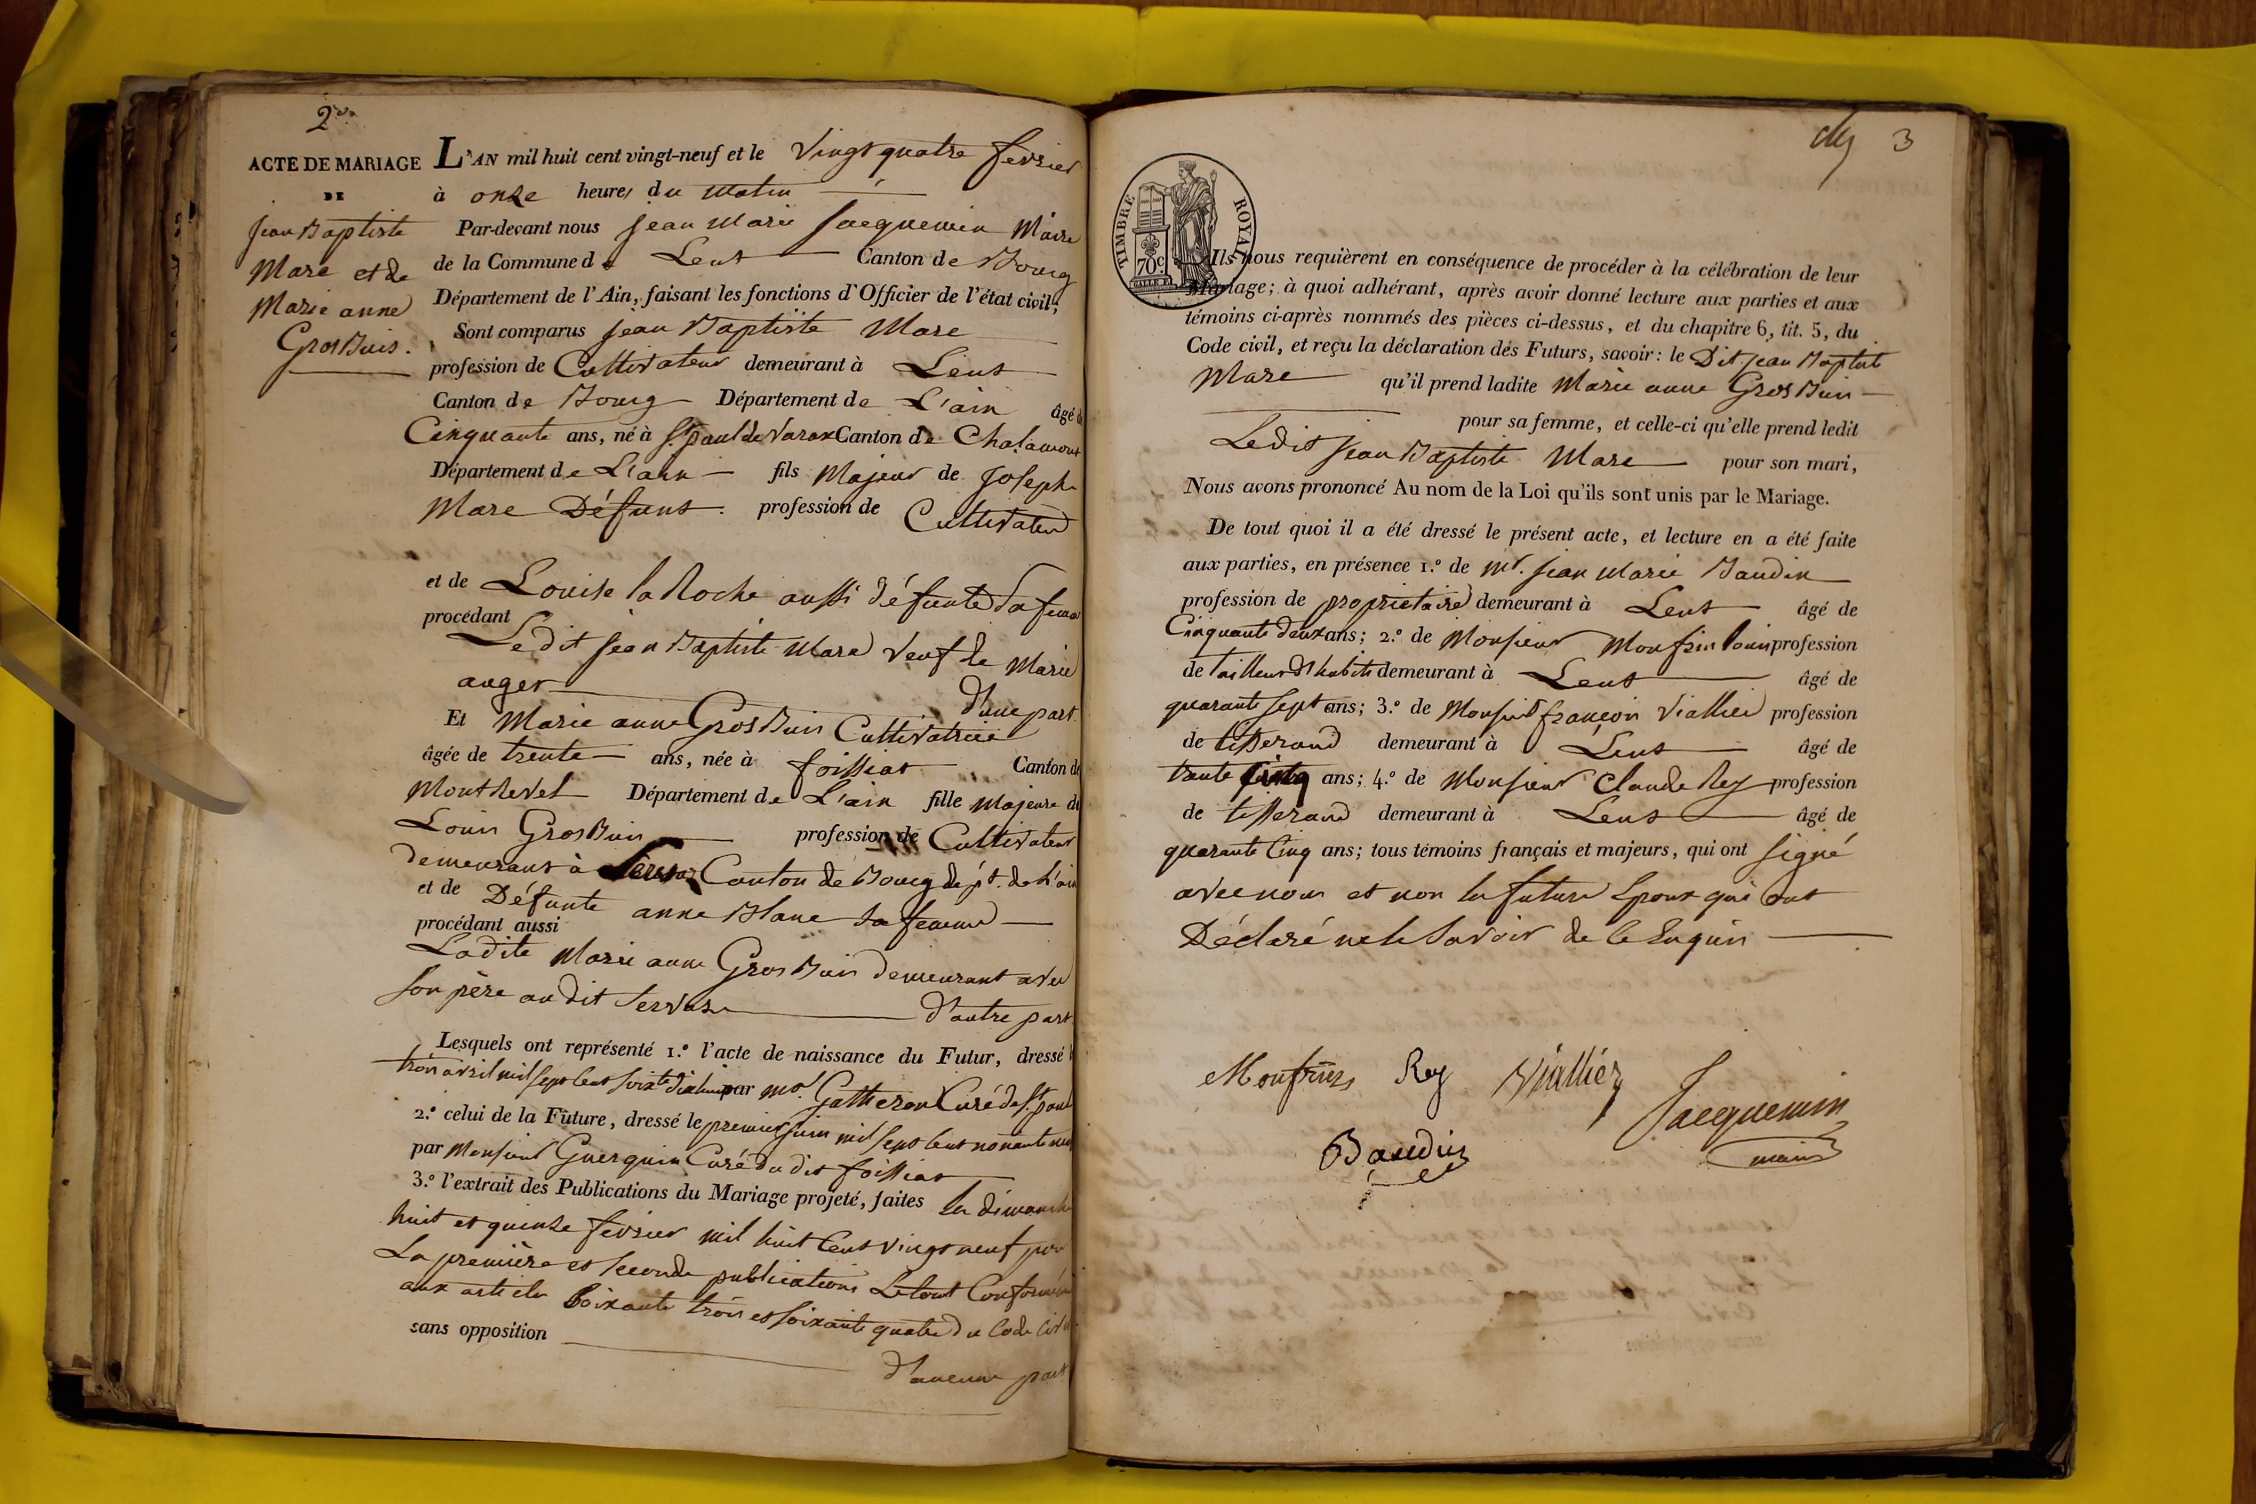 2me
ACTE DE MARIAGE
DE
Jean Baptiste
Mare et de
Marie anne
GrosBuis.
L'AN mil huit cent vingt-neuf et le Vingt quatre fevrier
à onze heures du matin
Par-devant nous Jean Marie Jacquemin Maire
de la Commune de Lent Canton de Bourg
Département de l'Ain, faisant les fonctions d'Officier de l'état civil,
Sont comparus Jean Baptiste Mare
profession de Cultivateur demeurant à Lent
Canton de Bourg Département de L'ain âgé de
Cinquante ans, né à St. paul de Varax Canton de Chalamont
Département de L'ain fils Majeur de Joseph
Mare Défunt. profession de Cultivateur
et de Louise la Roche aussi défunte Sa femme
procédant
Ledit Jean Baptiste Mare Veuf de Marie
auger d'une part.
Et Marie anne GrosBuis Cultivatrice
âgée de trente ans, née à foissiat Canton de
Montrevel Département de L'ain fille Majeure de
Louis GrosBuis profession de Cultivateur
demeurant à Servas Canton de Bourg dépt. de L'ain
et de Défunte anne Blanc Sa femme
procédant aussi
Ladite Marie anne GrosBuis demeurant avec
Son père au dit Servas d'autre part
Lesquels ont représenté 1.º l'acte de naissance du Futur, dressé le
trois avril mil sept cent soixte dix huit par Mr. Gatheron Curé de St. paul
2.º celui de la Future, dressé le premier juin mil sept cent nonante neuf
par Monsieur Guerquin Curé du dit foissiat
3.º l'extrait des Publications du Mariage projeté, faites les dimanche
huit et quinze fevrier mil huit Cent vingt neuf pour
La première et seconde publications Le tout Conformément
aux articles Soixante trois et soixante quatre du Code Civil
sans opposition
d'aucune part
3
TIMBRE ROYAL
70c
Ils nous requièrent en conséquence de procéder à la célébration de leur
Mariage; à quoi adhérant, après avoir donné lecture aux parties et aux
témoins ci-après nommés des pièces ci-dessus, et du chapitre 6, tit. 5, du
Code civil, et reçu la déclaration des Futurs, savoir: le Dit Jean Baptiste
Mare qu'il prend ladite Marie anne GrosBuis
pour sa femme, et celle-ci qu'elle prend ledit
Ledit Jean Baptiste Mare pour son mari,
Nous avons prononcé Au nom de la Loi qu'ils sont unis par le Mariage.
De tout quoi il a été dressé le présent acte, et lecture en a été faite
aux parties, en présence 1.º de Mr. Jean Marie Baudin
profession de propriétaire demeurant à Lent âgé de
Cinquante deux ans; 2.º de Monsieur Monfrin Louis profession
de tailleur d'habits demeurant à Lent âgé de
quarante sept ans; 3.º de Monsieur françois Viallier profession
de tisserand demeurant à Lent âgé de
trente cinq ans; 4.º de Monsieur Claude Rey profession
de tisserand demeurant à Lent âgé de
quarante Cinq ans; tous témoins français et majeurs, qui ont signé
avec nous et non les future Epoux qui ont
Déclaré ne le Savoir de ce Enquis
Rey Vialliez
Jacquemin
Baudin
maire